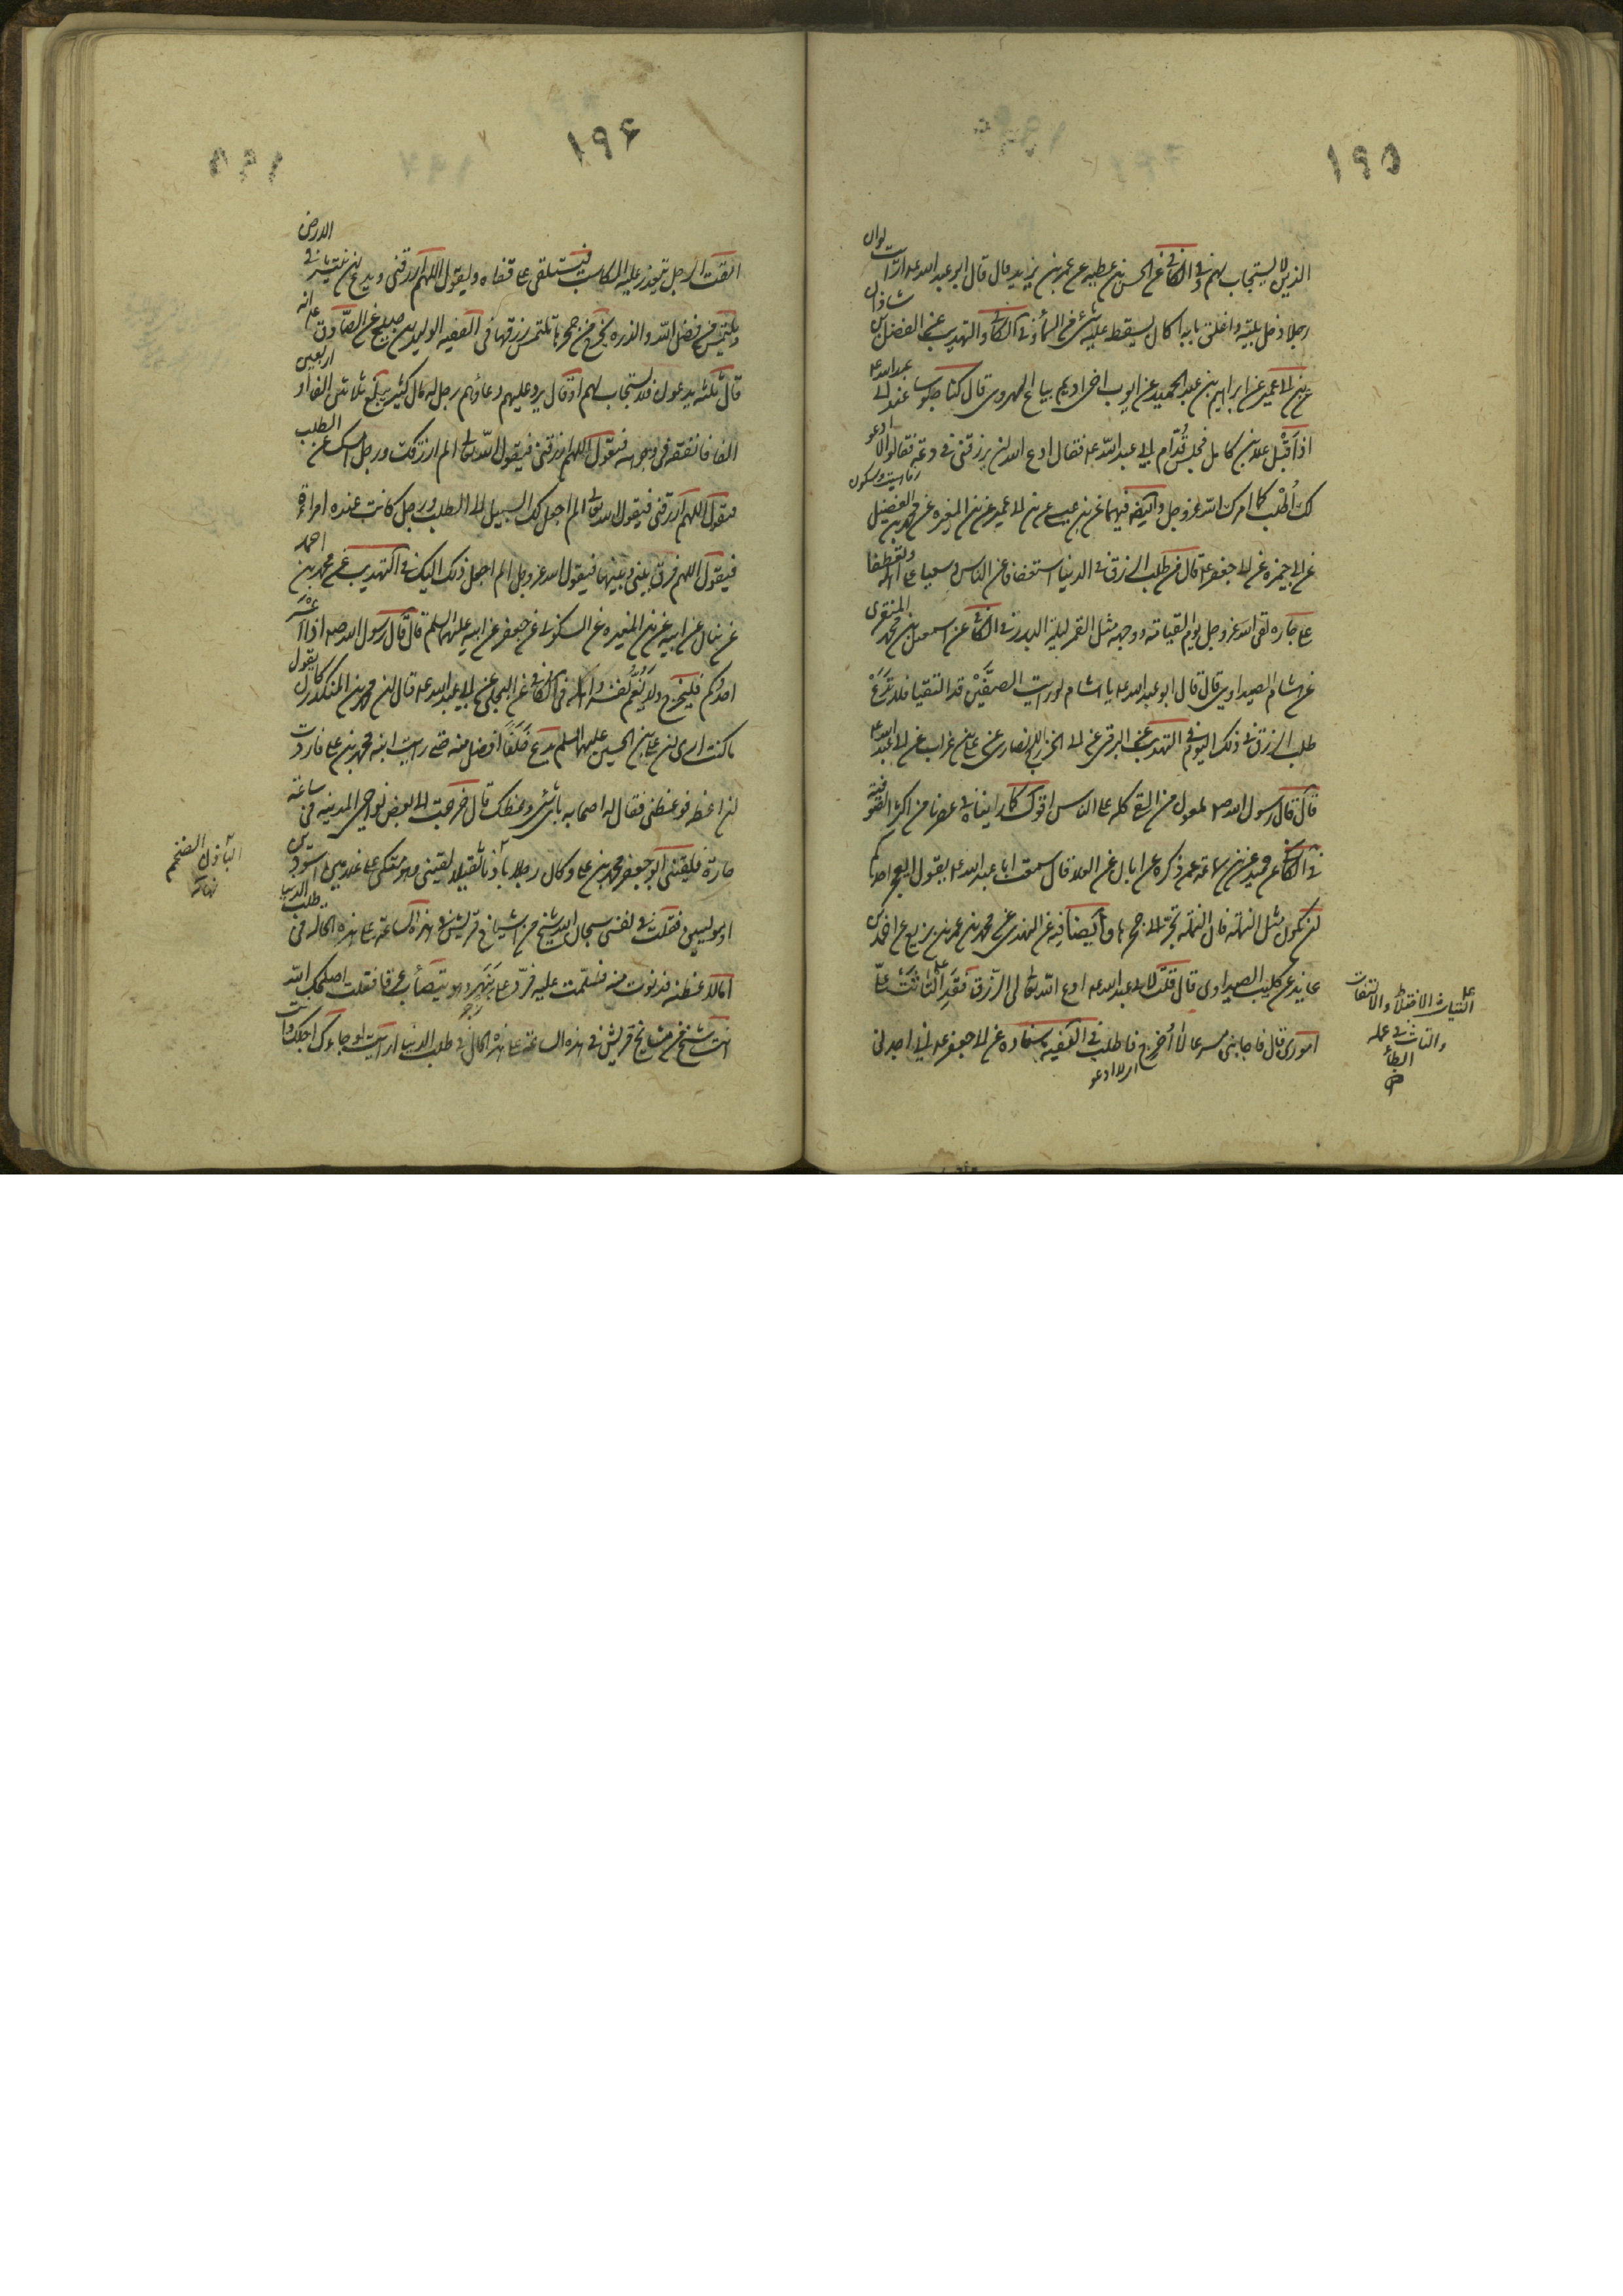 ١٩٥
الذين لا يستجاب لهم وفي الكافي عن الحسن بن عطيه عن عمر بن يزيد قال قال ابو عبد الله عم ارايت لوان
رجلا دخل بيته واغلق بابه اكان يسقط عليه شئ من السمأ وفي الكافي والتهذيب عن الفضل بن شاذان
عن بن ابي عمير عن ابراهيم بن عبد الحميد عن ايوب اخي اديم بياع الهروي قال كنا جلوسا عند ابي عبد الله عم
اذ اقبل علا بن كامل فجلس قدام ابي عبد الله عم فقال ادع الله ان يرزقني في دعة فقال لا ادعو
لك اطلب كما امرك الله عز وجل وايضا فيهما عن بن عيسى عن بن ابي عمير عن بن المغيره عن محمد بن الفضيل
عن ابي حمزه عن ابي جعفر عم قال من طلب الرزق في الدنيا استعفافا عن الناس وسعيا على اهله وتعطفا
على جاره لقى الله عز وجل يوم القيامة ووجهه مثل القمر ليلة البدر وفي الكافي عن اسمعيل بن محمد المنقري
عن هشام الصيداوي قال قال ابو عبد الله عم يا هشام لو رايت الصفين قد التقيا فلا تدع
طلب الرزق في ذلك اليوم وفي التهذيب عن البرقي عن ابي الخزرج الانصاري عن علي بن غراب عن ابي عبد الله عم
قال قال رسول الله ص ملعون من القى كله على الناس
في الكافي عن بن سماعة عمن ذكره عن ابان عن العلا قال سمعت ابا عبد الله عم يقول ايعجز احدكم
ان يكون مثل النملة فان النملة تجر الى جحرها وايضا فيه عن النهدي عن محمد بن عمر بن بزيع عن احمد بن
عايذ عن كليب الصيداوي قال قلت لابي عبد الله عم ادع الله تعالى لي الرزق فقد التاثت على
اموري قال فاجابني مسرعا لا اخرج فاطلب وفي الفقيه باسناده عن ابي جعفر عم اني اجدني
اي لا ادعو
الالتياث الاختلاط والالتفات
والتاث في عمله
ابطأ
ص
١٩٦
امقت الرجل يتعذر عليه المكاسب فيستلقي على قفاه ويقول اللهم ارزقني ويدع ان ينتشر في الارض
ويلتمس من فضل الله والذره يخرج من جحرها تلتمس رزقها في الفقيه الوليد بن صبيح عن الصادق عم انه
قال ثلثه يدعون فلا يستجاب لهم او قال يرد عليهم دعاؤهم رجل له مال كثير يبلغ ثلاثين الفا او اربعين
الفا فانفقه في وجوهه فيقول اللهم ارزقني فيقول الله تعالى الم ارزقك ورجل امسك عن الطلب
فيقول اللهم ارزقني فيقول الله تعالى الم اجعل لك السبيل الى الطلب ورجل كانت عنده امراة
فيقول اللهم فرق بيني وبينها فيقول الله عز وجل الم اجعل ذلك اليك في التهذيب عن محمد بن احمد
عن بنان عن ابيه عن بن المغيره عن السكوني عن جعفر عن ابيه عليهما السلم قال قال رسول الله صم اذا اعسر
احدكم فليخرج ولا يغم نفسه واهله في الكافي عن البجلي عن ابي عبد الله عم قال ان محمد بن المنكدر كان يقول
ما كنت ارى ان علي بن الحسين عليهما السلم يدع خلفا افضل منه حتى رايت ابنه محمد بن علي فاردت
ان اعظه فوعظني فقال له اصحابه باي شئ وعظك قال خرجت الى بعض نواحي المدينه في ساعة
حارة فلقيني ابو جعفر محمد بن علي وكان رجلا بادنا ثقيلا وهو متكي على غلامين اسودين
او موليين فقلت في نفسي سبحان الله شيخ من اشياخ قريش في هذه الساعة على هذه الحاله في طلب الدنيا
اما لاعظنه فدنوت منه فسلمت عليه فرد علي بنهر وهو يتصاب عرقا فقلت اصلحك الله
انت شيخ من مشايخ قريش في هذه الساعة على هذه الحال في طلب الدنيا ارايت لو جاءك اجلك وانت
زجر
البادن الضخم
نهاية